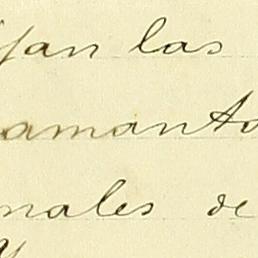 jan las
amanto
nales de